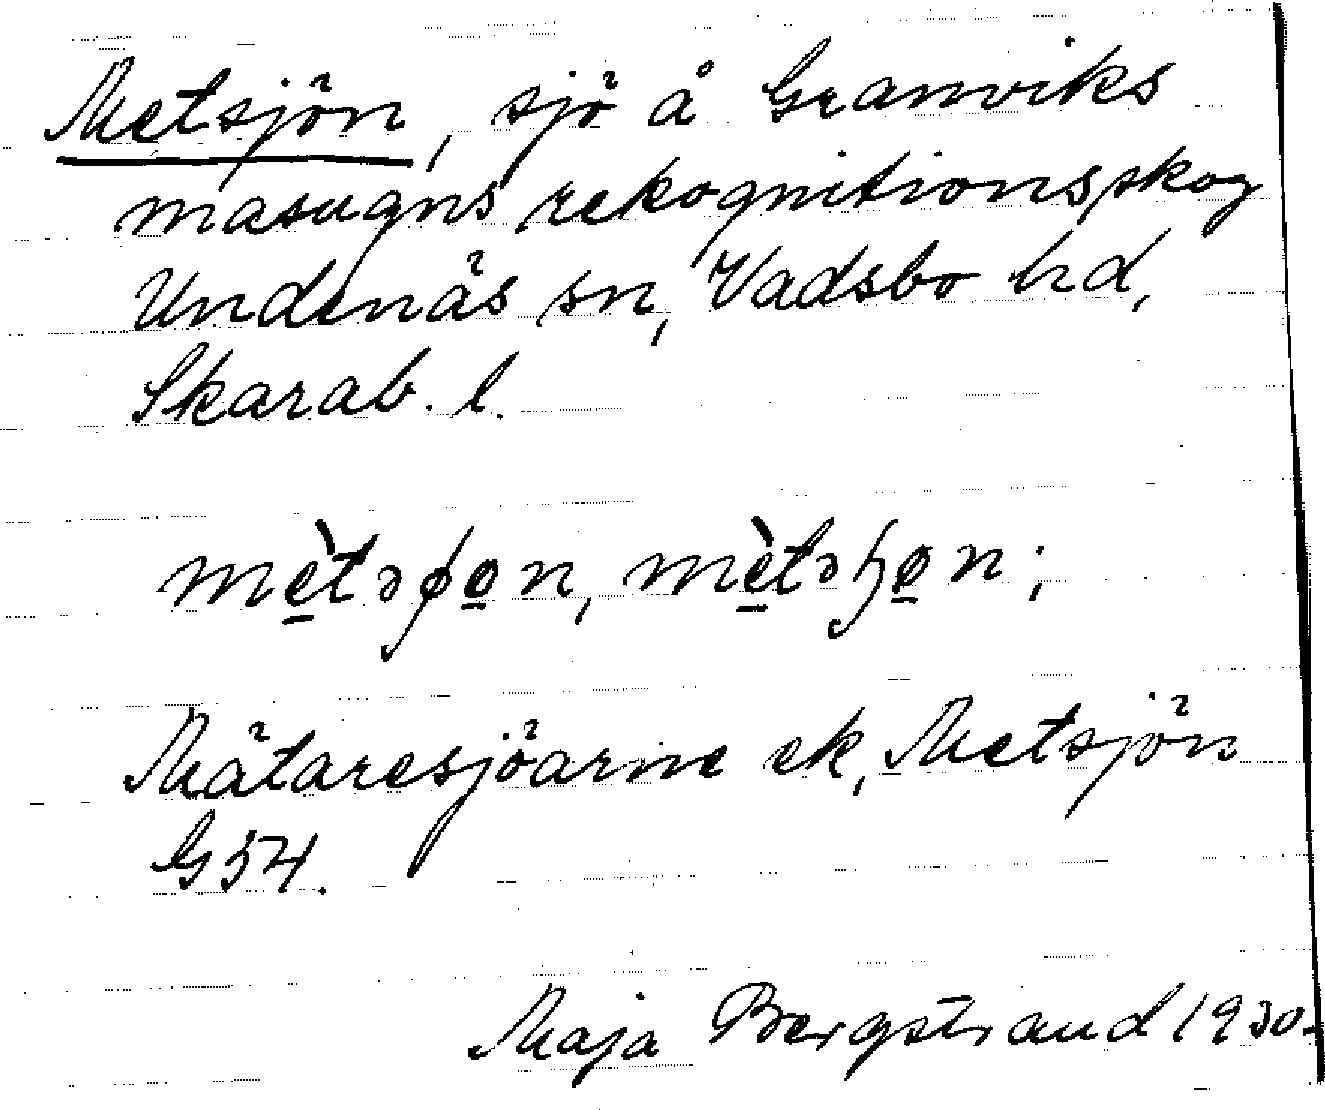 Metsjön, sjö å Granviks
masugns rekognitionsskog
Undenäs sn, Vadsbo hd,
Skarab. l.
Mätaresjöarne ek, Metsjön
G 54.
Maja Bergstrand 1930.